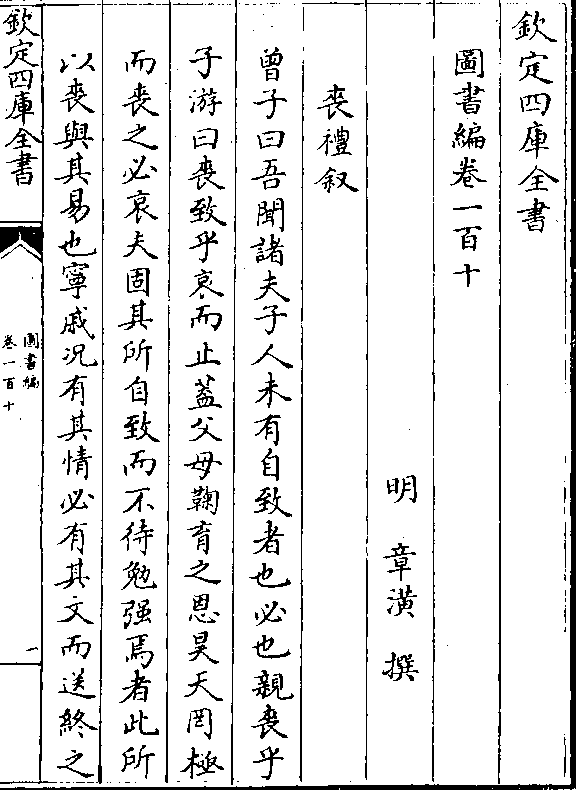 欽定四庫全書
圖書編卷一百十
明 章潢 撰
喪禮叙
曾子曰吾聞諸夫子人未有自致者也必也親喪乎
子游曰喪致乎哀而止葢父母鞠育之恩昊天罔極
而喪之必哀夫固其所自致而不待勉强焉者此所
以喪與其易也寧戚况有其情必有其文而送終之
欽定四庫全書
圖書編
卷一百十
一